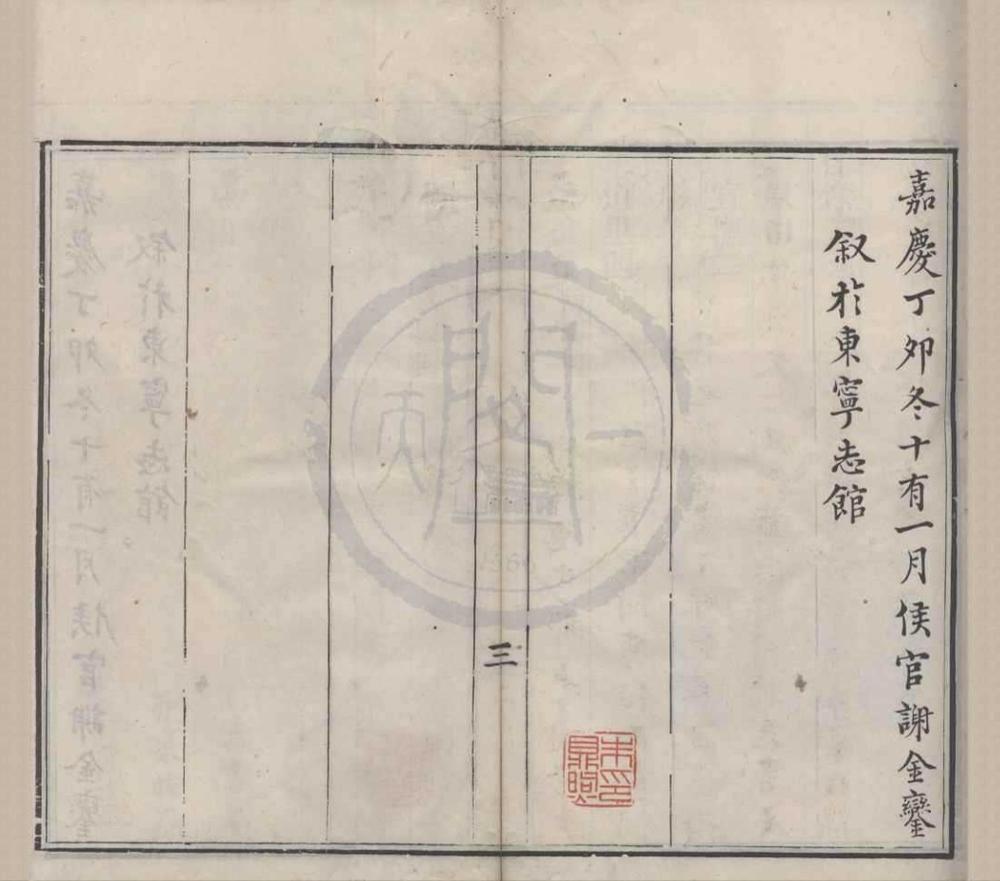 嘉慶丁卯冬十有一月侯官謝金鑾
叙於東寧志館
三